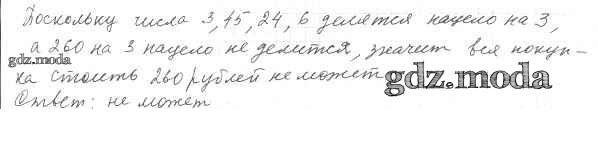 Поскольку числа 3, 45, 24, 6 делятся нацело на 3,
а 260 на 3 нацело не делится, значит вся покуп-
gdz.moda
ка стоить 260 рублей не может
gdz.moda
Ответ: не может